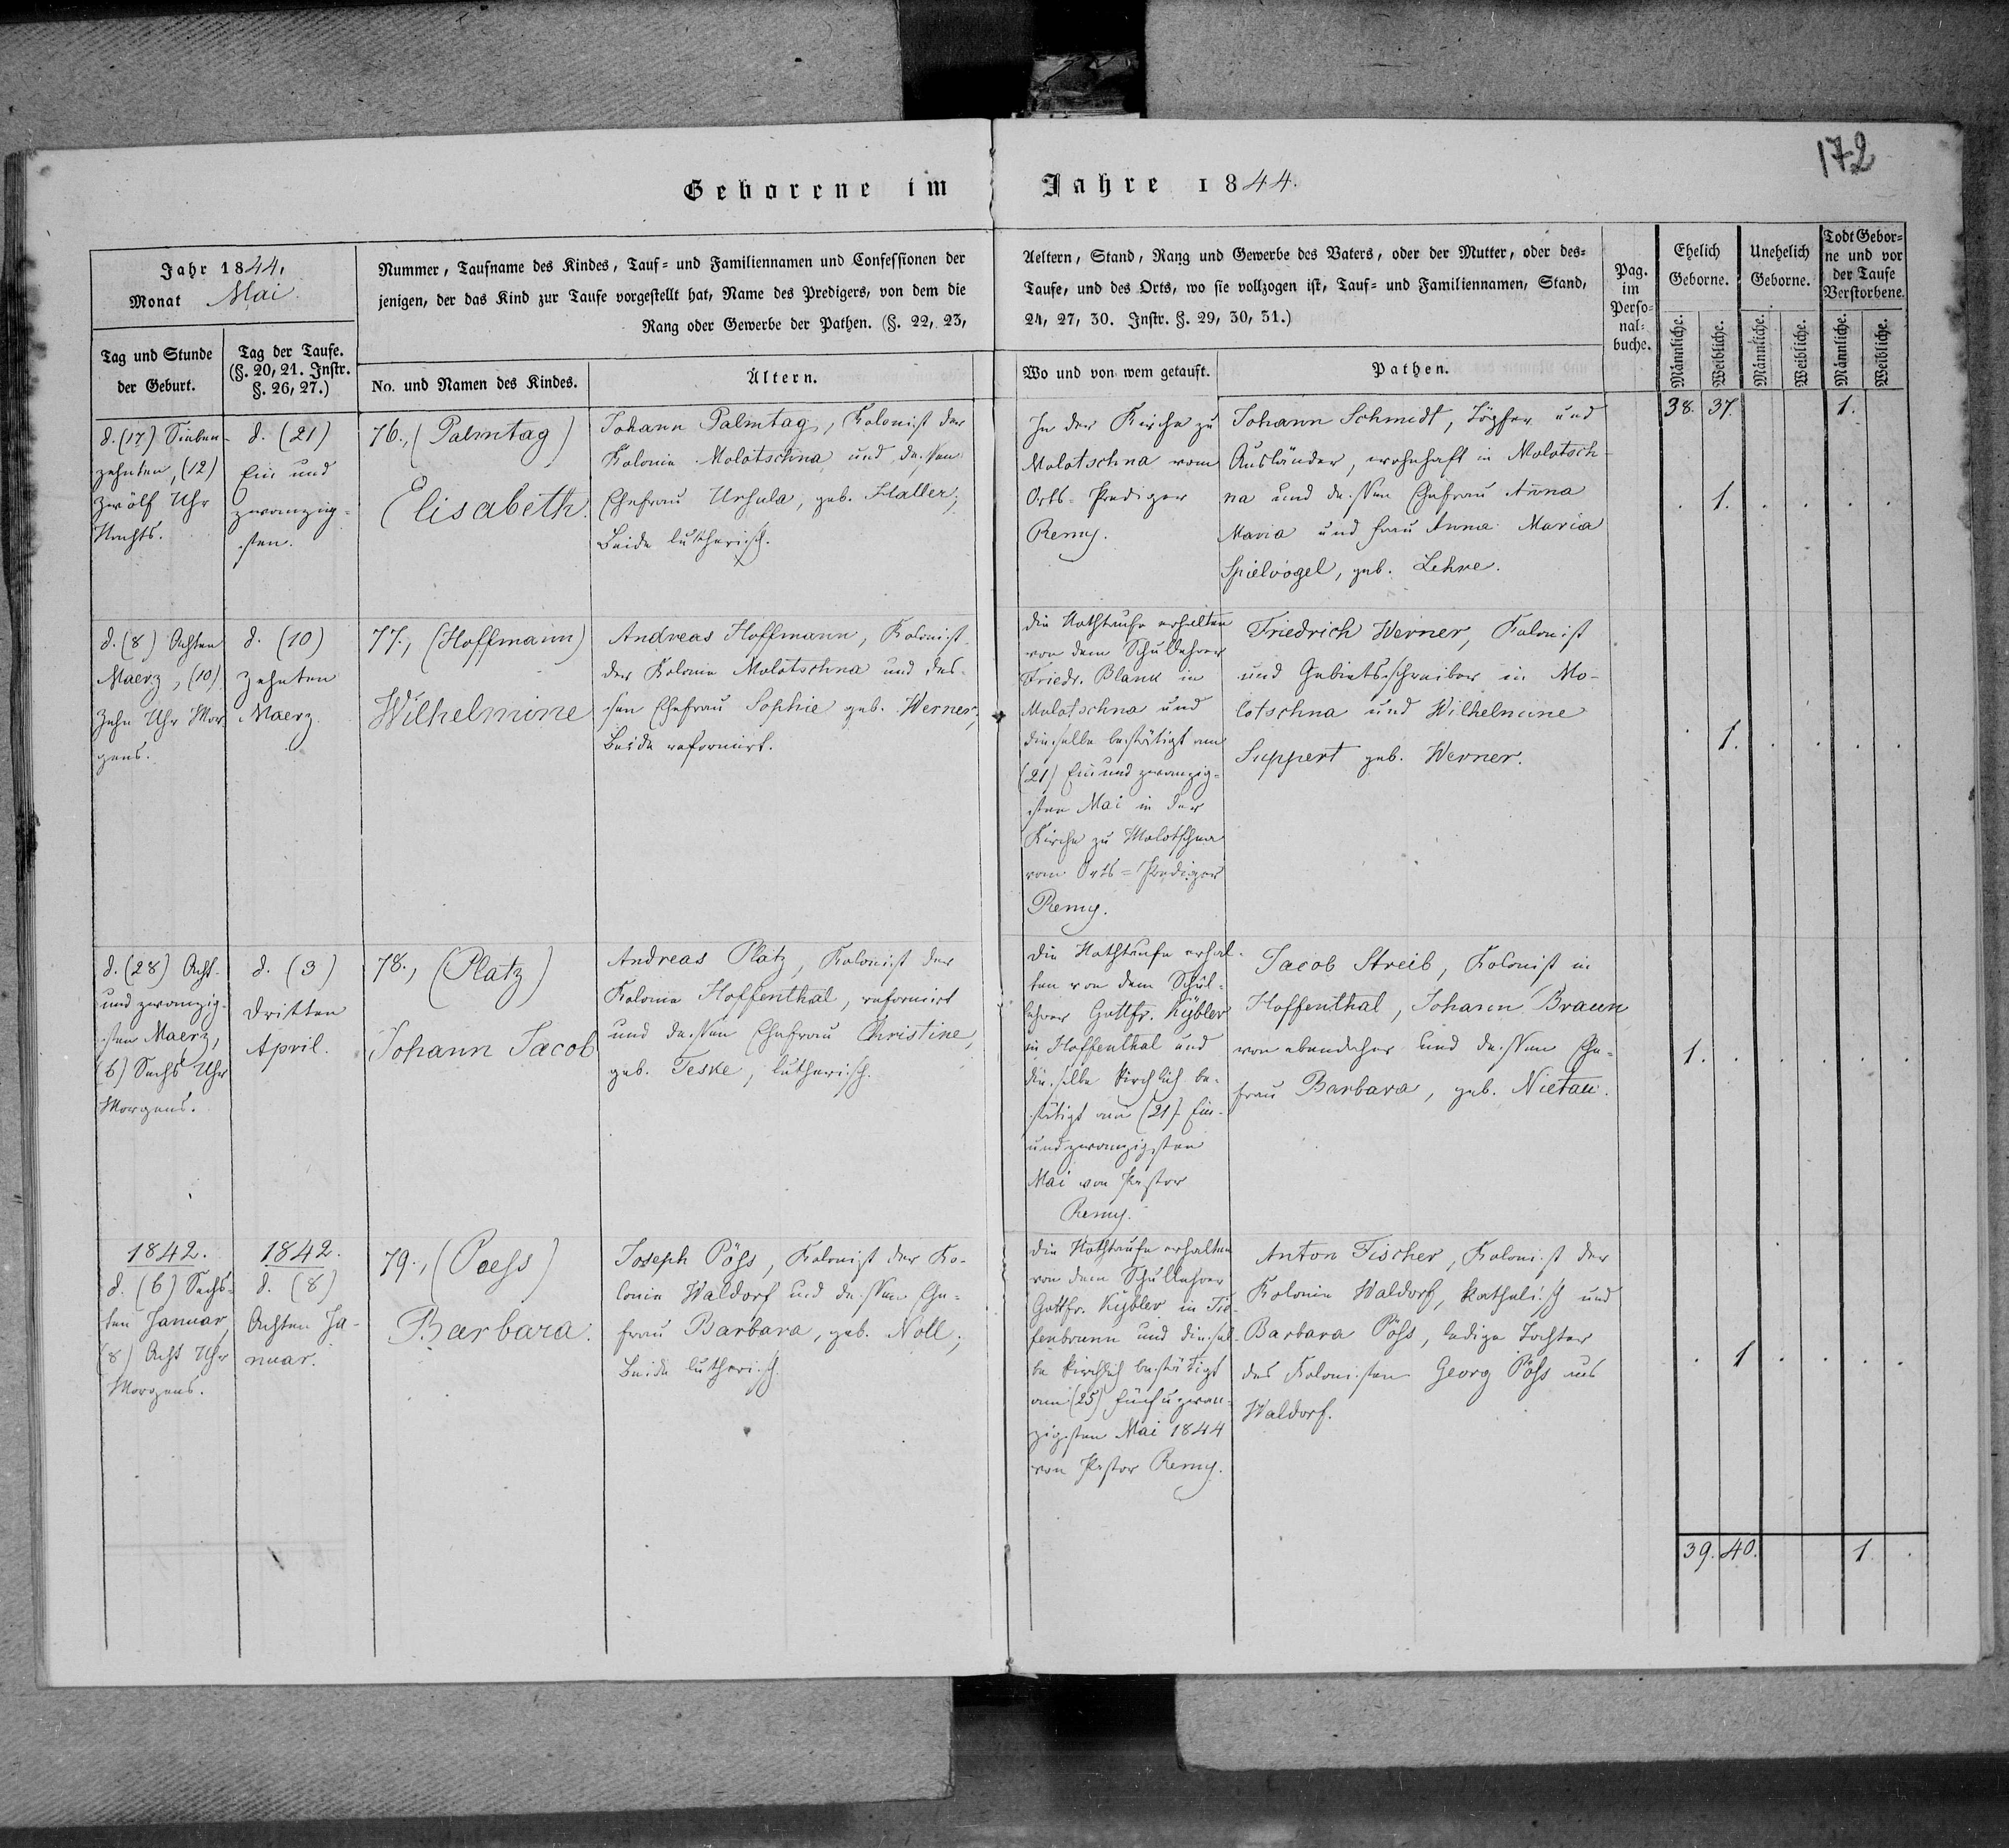 172
Geborene im Jahre 1844.
Jahr 1844.
Monat Mai.
Nummer, Taufname des Kindes, Tauf- und Familiennamen und Confessionen der
jenigen, der das Kind zur Taufe vorgestellt hat, Name des Predigers, von dem die
Rang oder Gewerbe der Pathen. (§. 22, 23,
Aeltern, Stand, Rang und Gewerbe des Vaters, oder der Mutter, oder des-
Taufe, und des Orts, wo sie vollzogen ist, Tauf- und Familiennamen, Stand,
24, 27, 30. Instr. §. 29, 30, 31.)
Pag.
im
Perso-
nal-
buche.
Ehelich
Geborne.
Unehelich
Geborne.
Todt Gebor-
ne und vor
der Taufe
Verstorbene.
Männliche.
Weibliche.
Männliche.
Weibliche.
Männliche.
Weibliche.
Tag und Stunde
der Geburt.
Tag der Taufe.
(§. 20, 21. Instr.
§. 26, 27.)
No. und Namen des Kindes.
Ältern.
Wo und von wem getauft.
Pathen.
38. 37. 1.
d. (17) Sieben-
zehnten, (12)
zwölf Uhr
Nachts.
d. (21)
Ein und
zwanzig-
sten.
76., (Palmtag)
Elisabeth.
Johann Palmtag, Kolonist der
Kolonie Molotschna und dessen
Ehefrau Ursula, geb. Haller;
Beide lutherisch.
In der Kirche zu
Molotschna vom
Orts-Prediger
Remy.
Johann Schmidt, Töpfer und
Ausländer, wohnhaft in Molotsch-
na und dessen Ehefrau Anna
Maria und Frau Anna Maria
Spielvogel, geb. Lehre.
. 1. . . . .
d. (8) Achten
Maerz, (10)
Zehn Uhr Mor
gens.
d. (10)
Zehnten
Maerz.
77., (Hoffmann)
Wilhelmine
Andreas Hoffmann, Kolonist
der Kolonie Molotschna und des-
sen Ehefrau Sophie geb. Werner,
Beide reformirt.
Die Nothtaufe erhalten
von dem Schullehrer
Friedr. Blank in
Molotschna und
dieselbe bestätigt am
(21) Ein und zwanzig-
sten Mai in der
Kirche zu Molotschna
vom Orts-Prediger
Remy.
Friedrich Werner, Kolonist
und Gebietsschreiber in Mo-
lotschna und Wilhelmine
Suppert geb. Werner.
. 1. . . . .
d. (28) Acht-
und zwanzig-
sten Maerz,
(6) Sechs Uhr
Morgens.
d. (3)
Dritten
April.
78., (Platz)
Johann Jacob
Andreas Platz, Kolonist der
Kolonie Hoffenthal, reformirt
und dessen Ehefrau Christine,
geb. Teske, lutherisch.
Die Nothtaufe erhal-
ten von dem Schul-
lehrer Gottfr. Kybler
in Hoffenthal und
dieselbe kirchlich be-
stätigt am (21) Ein-
undzwanzigsten
Mai von Pastor
Remy.
Jacob Streib, Kolonist in
Hoffenthal, Johann Braun
von ebendaher und dessen Ehe-
frau Barbara, geb. Nietau.
1. . . . . .
1842.
d. (6) Sechs-
ten Januar,
(8) Acht Uhr
Morgens.
1842.
d. (8)
Achten Ja-
nuar.
79., (Poess)
Barbara.
Joseph Pöß, Kolonist der Ko-
lonie Waldorf und dessen Ehe-
frau Barbara, geb. Noll;
Beide lutherisch.
Die Nothtaufe erhalten
von dem Schullehrer
Gottfr. Kybler in Tie-
fenbrunn und diesel-
be kirchlich bestätigt
am (25) Fünf u zwan-
zigsten Mai 1844
von Pastor Remy.
Anton Fischer, Kolonist der
Kolonie Waldorf, katholisch und
Barbara Pöß, ledige Tochter
des Kolonisten Georg Pöß aus
Waldorf.
. 1 . . . .
39. 40. 1. .